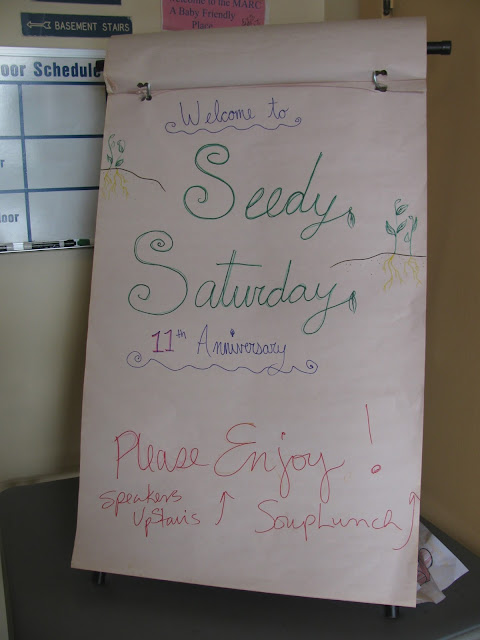 Welcome to the MARC
A Baby Friendly
Place
BASEMENT STAIRS
oor Schedule
r
loor
Welcome to
Seedy
Saturday
11th Anniversary
Please Enjoy!
Speakers
Upstairs
Soup Lunch